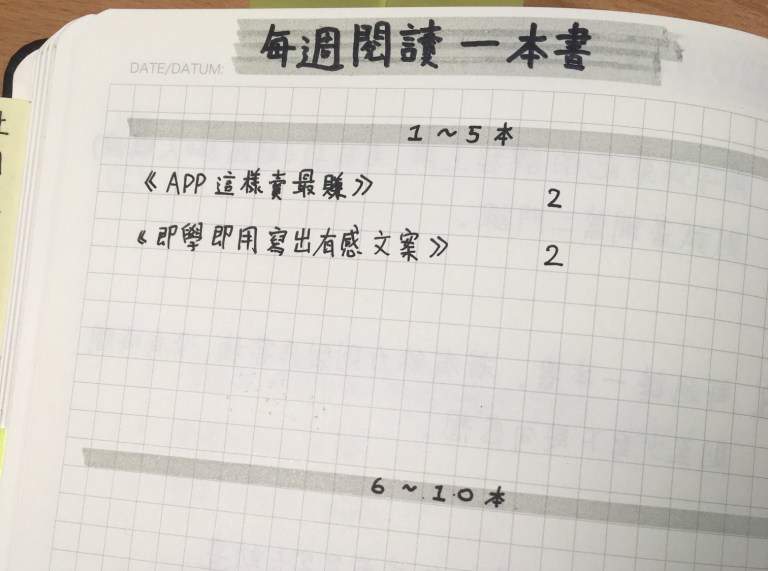 每週閱讀一本書
DATE/DATUM:
1~5本
《APP這樣賣最賺》 2
《即學即用寫出有感文案》 2
6~10本